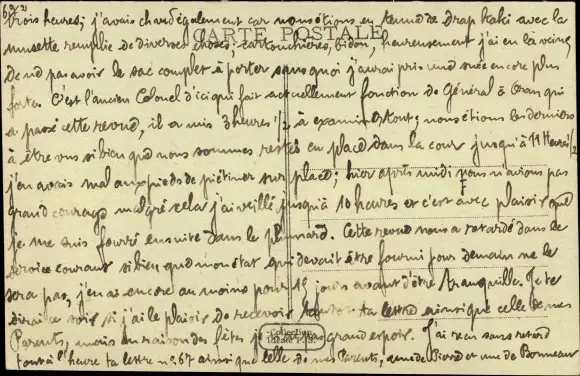 trois heures; j'avais chaud également car nous étions en tenue de drap kaki avec la
CARTE POSTALE
musette remplie de diverses choses; cartouchières, bidon, heureusement j'ai eu la veine
de ne pas avoir le sac complet à porter sans quoi j'aurai pris une suée encore plus
forte. C'est l'ancien Colonel d'ici qui fait actuellement fonction de Général à Oran qui
a passé cette revue, il a mis 3 heures 1/2 à examiner tout; nous étions les derniers
à être vus si bien que nous sommes restés en place dans la cour jusqu'à 11 heures 1/2
j'en avais mal aux pieds de piétiner sur place; hier après midi nous n'avions pas
grand courage malgré cela j'ai veillé jusqu'à 10 heures et c'est avec plaisir que
je me suis fourré ensuite dans le plumard. Cette revue nous a retardé dans le
service courant si bien que mon état qui devait être fourni pour demain ne le
sera pas, j'en ai encore au moins pour 15 jours avant d'être tranquille. Je te
dirai ce soir si j'ai le plaisir de recevoir tantôt ta lettre ainsi que celle de mes
Parents, mais en raison des fêtes je grand espoir. J'ai reçu sans retard
tout à l'heure ta lettre n° 67 ainsi que celle de mes Parents, une de Pierre et une de Bonneau
Collection